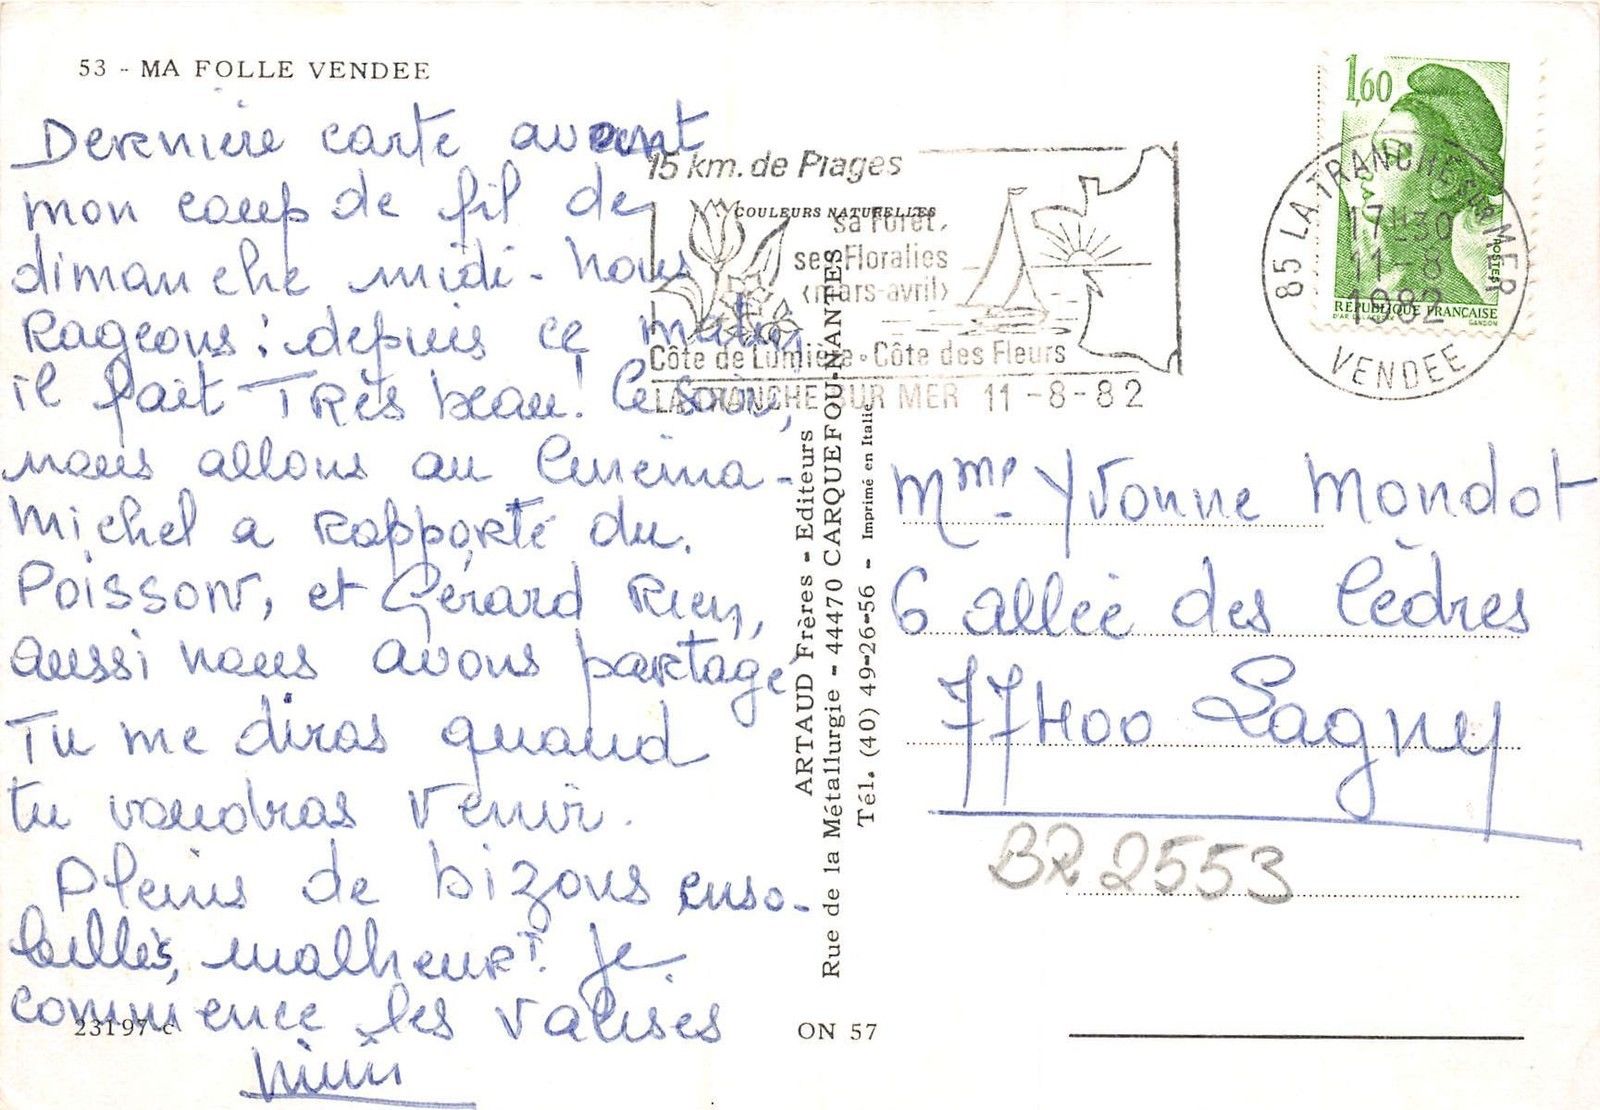 53 - MA FOLLE VENDEE
Dernière carte avant
mon coup de fil de
dimanche midi - Nous
Rageons : depuis ce matin,
il fait Très beau! Ce soir,
nous allons au Cinéma -
Michel a rapporté du
Poisson, et Gérard Rien,
aussi nous avons partagé
Tu me diras quand
tu voudras venir.
Pleins de bizous enso-
leillés, malheur! Je
commence les valises
Mimi
23197 c
15 km. de Plages
COULEURS NATURELLES
sa Forêt,
ses Floralies
<mars-avril>
Côte de Lumière - Côte des Fleurs
LA TRANCHE SUR MER 11 -8-82
ARTAUD Frères - Editeurs
Rue de la Métallurgie - 44470 CARQUEFOU-NANTES
Tél. (40) 49-26-56 - Imprimé en Italie
ON 57
1,60
POSTES
RÉPUBLIQUE FRANÇAISE
D'AP. DELACROIX
GANDON
85 LA TRANCHE SUR MER
17H30
11-8
1982
VENDEE
Mme. Yvonne Mondot
6 allée des Cèdres
77400 Lagny
BR 2553